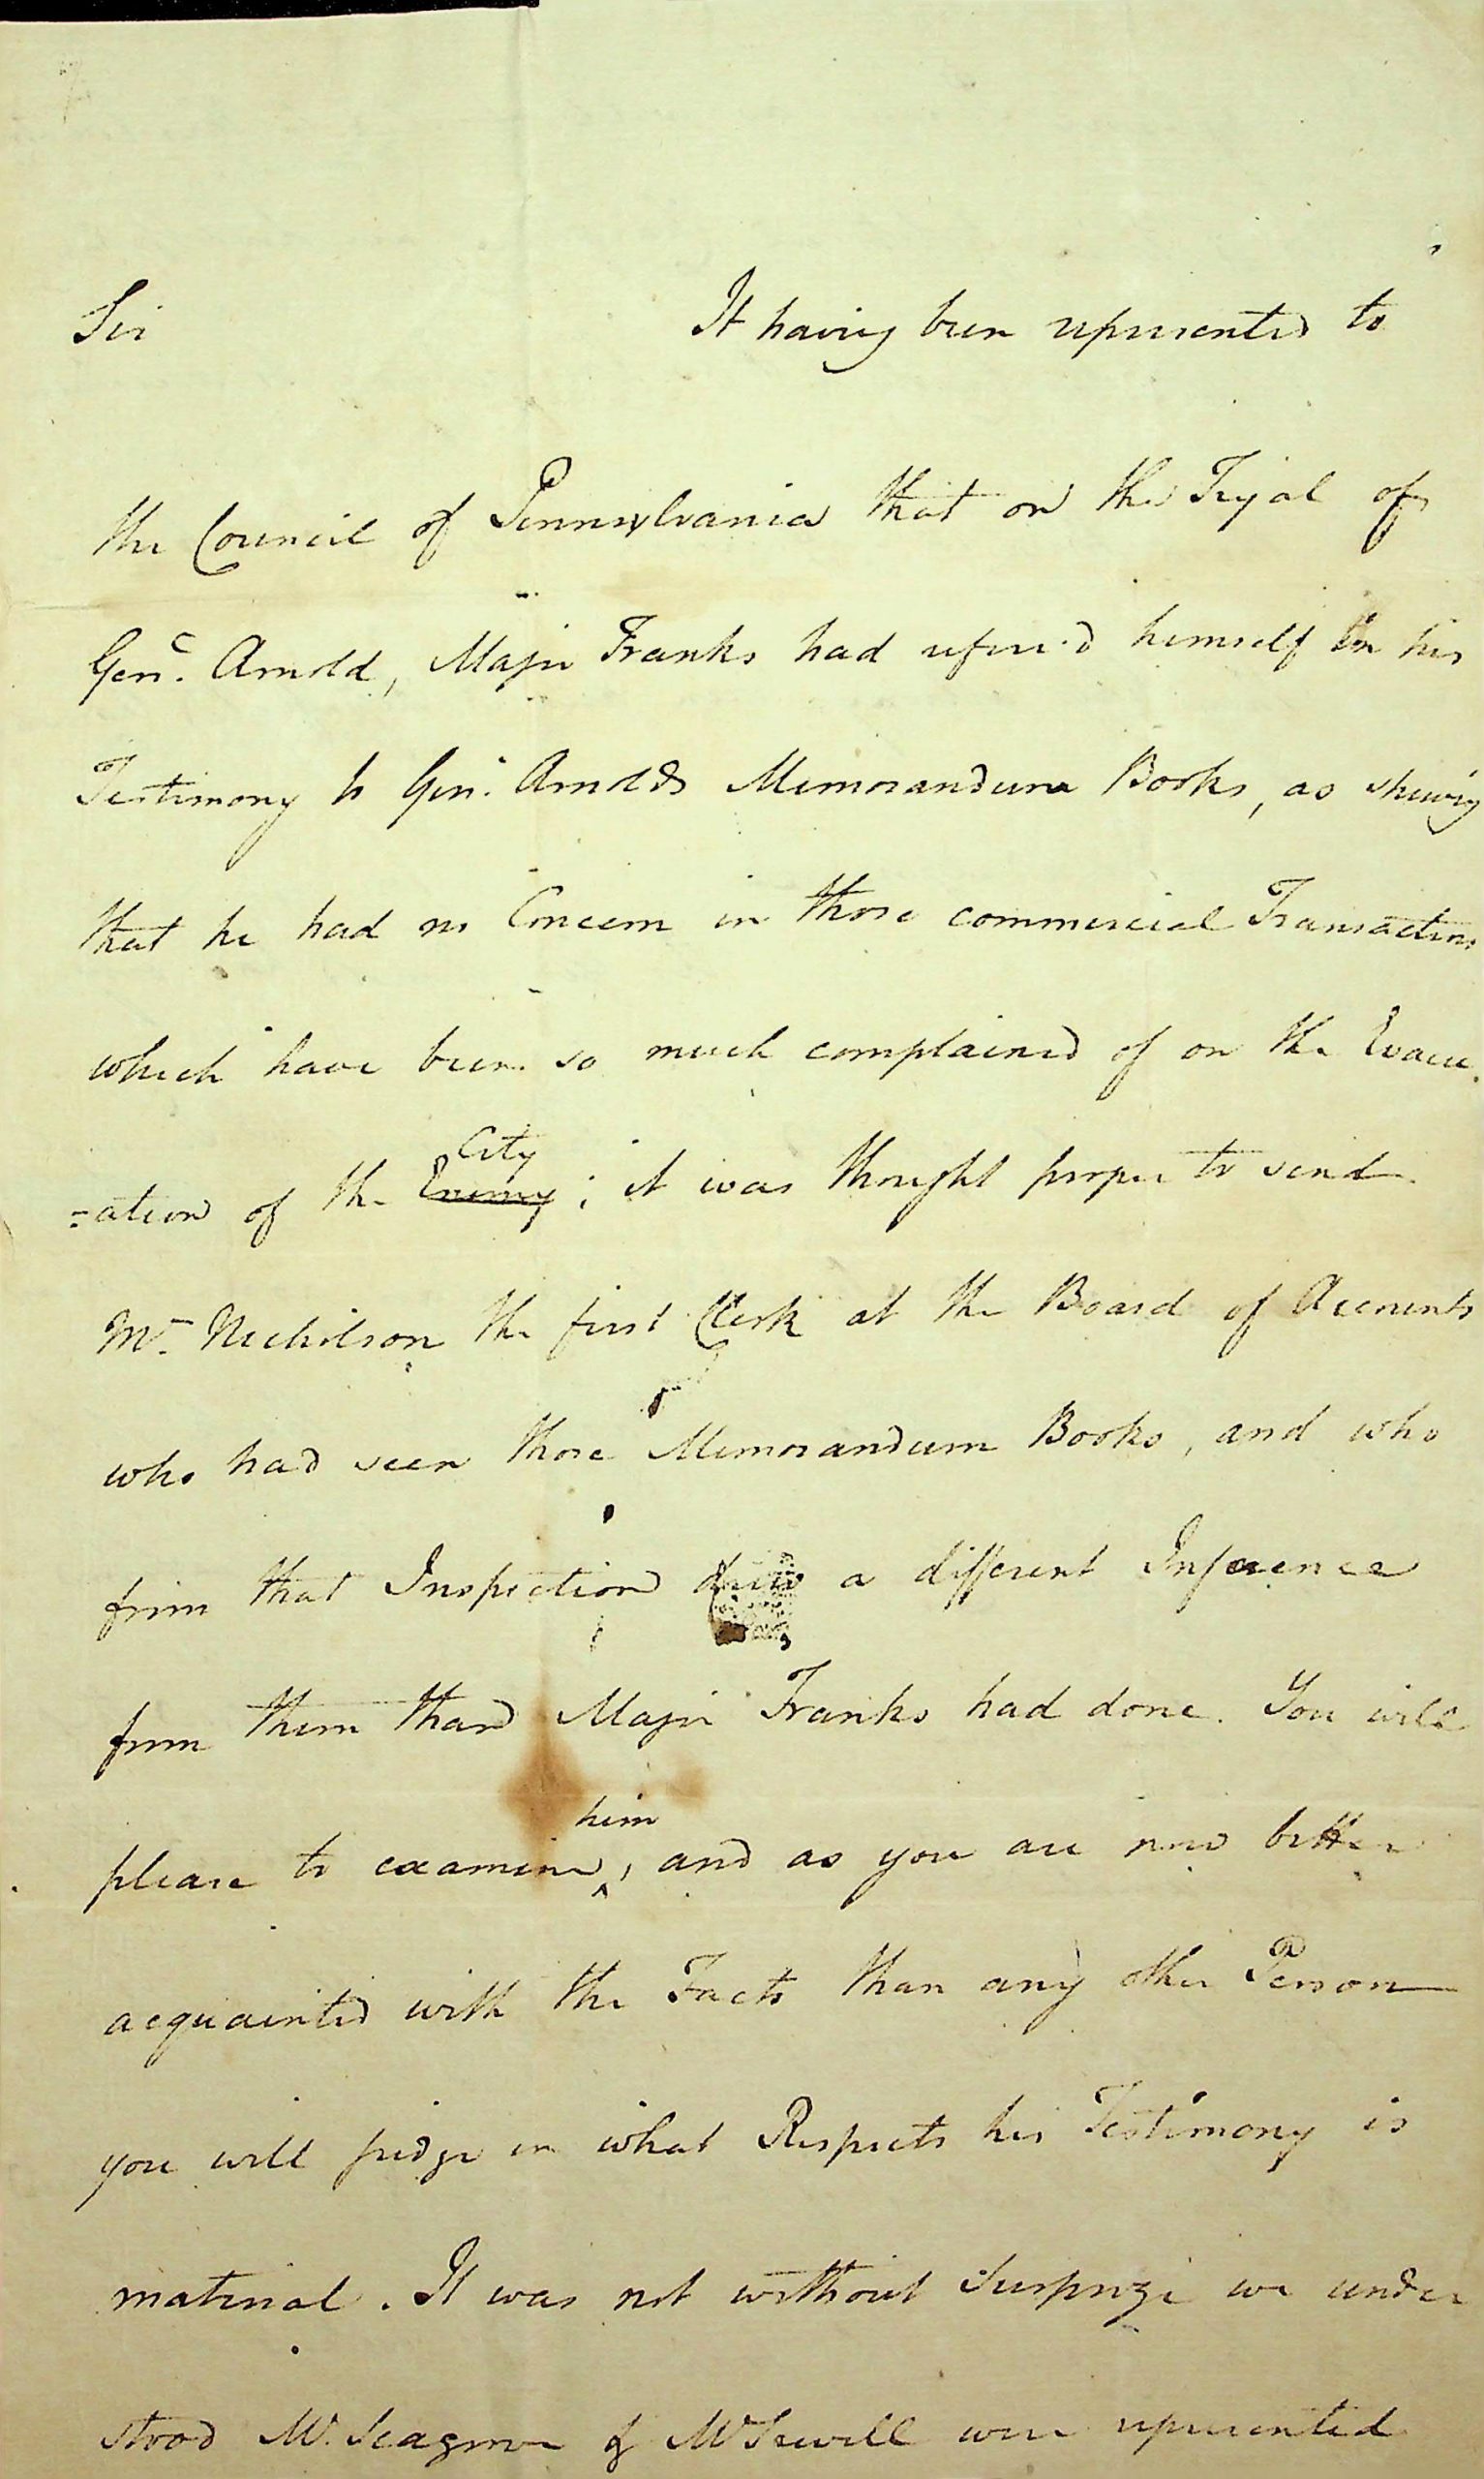 Sir It having been represented to
the Council of Pennsylvania that on the Tryal of
Genl. Arnold, Major Franks had referr'd himself in his
Testimony to Genl. Arnolds Memorandum Books, as shewing
that he had no Concern in those commercial Transactions
which have been so much complained of on the Evacu
City
=ation of the Enemy; it was thought proper to send
Mr. Nicholson the first Clerk at the Board of Accounts
who had seen those Memorandum Books, and who
from that Inspection drew a different Inference
from them than Major Franks had done. You will
him
please to examine ^, and as you are now better
acquainted with the Facts than any other Person
you will judge in what Respects his Testimony is
material. It was not without Surprize we under
stood Mr. Seagrove & Mr Sewill were represented